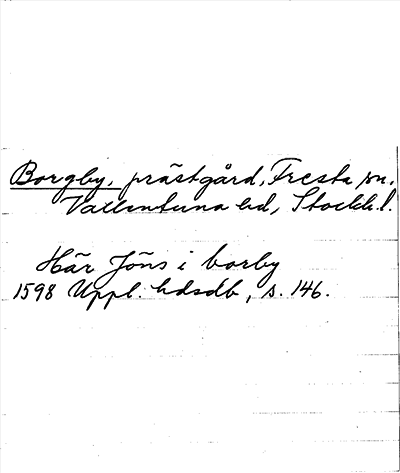 Borgby, prästgård, Fresta sn.
Vallentuna hd, Stockh. l.
Här Jöns i borby
1598 Uppl. hdsdb, s. 146.